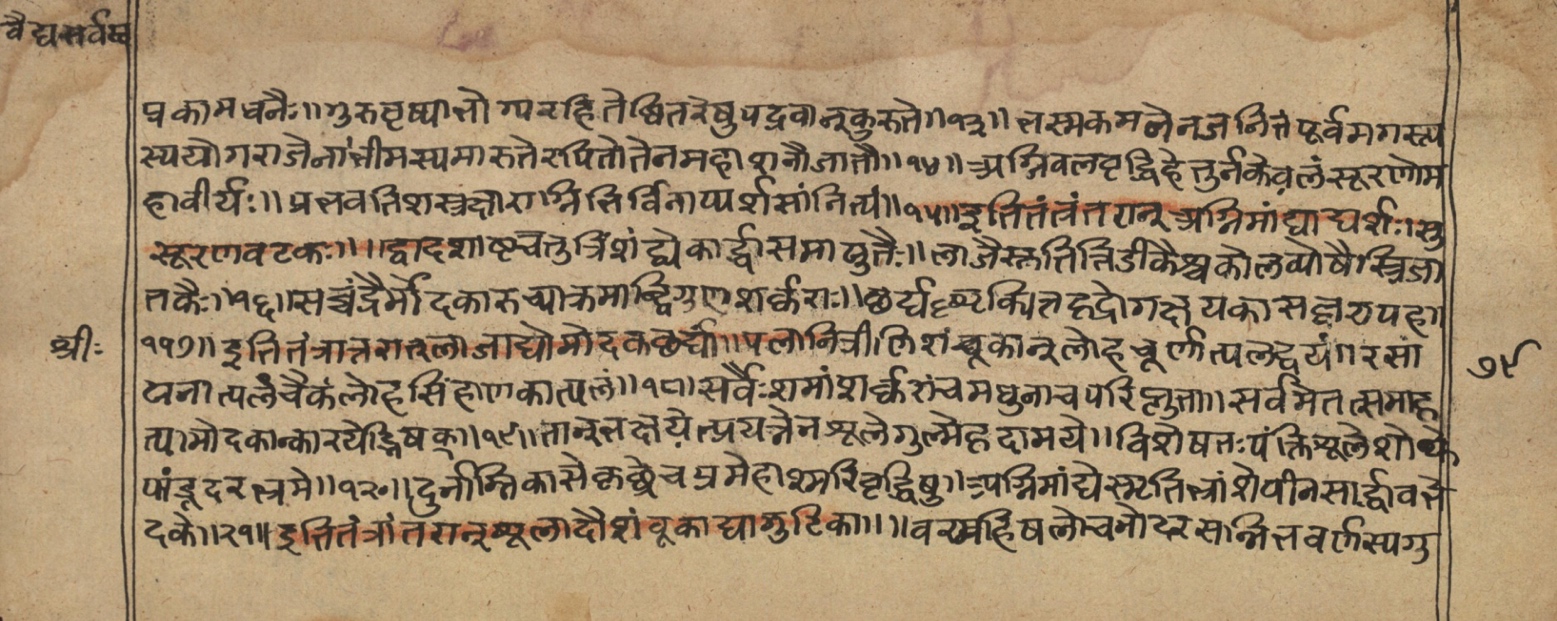 वैद्यसर्वस्व
प्रकामघनैः॥ गुरुवृष्यान्नो ग्परहितेष्वितरेषुपद्रवान्कुरुते॥१३॥ भस्मकमनेनजनितं पूर्वमगस्त्य
स्ययोगराजेनभीमस्यमारुतेरपितौतेनमहाशनौजातौ॥१४॥ अग्निबलवृद्धिहेतुर्नकेवलंसूरणोम
हावीर्यः॥ प्रभवतिशस्त्रक्षाराग्निभिर्विनाप्यर्शसांनित्यं॥१५॥ इतितंत्रंतरान् अग्निमांद्याद्यर्शः। सु
सूरणवटकः॥ ॥द्वादशाष्टचतुत्रिंशंद्व्येकार्द्धासमाप्लुतैः॥ लाजैस्तुतिंतिडीकैश्चकोलव्योषैस्त्रिजा
तकैः॥१६॥ सच्चंद्रैर्मोदकारुच्याक्रमाद्द्विगुणशर्कराः॥ छर्द्य हृद्रोगक्षयकास पहा॥
श्रीः
१७॥ इतितंत्रान्तरात्लाजाद्योमोदकछर्द्यां॥ ॥पलानित्रीणिशंबूकान्लोहचूर्णात्पलद्वयं॥ रसां
७९
जनात्पलंचैकंलोहसिंहाणकात्पलं॥१८॥ सर्वैःशमांशर्करांचमधुनाचपरिप्लुता॥ सर्वमेतत्समाहृ
त्यमोदकान्कारयेद्भिषक्॥१९॥ तान्भक्षयेत्प्रयत्नेनशूलेगुल्मेहृदामये॥ विशेषतःपंक्तिशूलेशोथे
पांडूदरभ्रमे॥२०॥ दुर्नाम्निकासेकृछ्रेचप्रमेहाश्मरिवृद्धिषु॥ अग्निमांद्येस्मृतिभ्रांशेपीनसार्द्धावभे
दके॥२१॥ इतितंत्रांतरान्शूलादौशंबूकाद्यागुटिका॥ ॥वरमहिषलोचनोदरसन्निभवर्णस्यगु